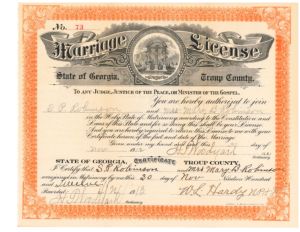 No. 73
Marriage License
State of Georgia, Troup County.
TO ANY JUDGE, JUSTICE OF THE PEACE, OR MINISTER OF THE GOSPEL.
You are hereby authorized to join
S P Robinson and Mrs Mary B Robinson
in the Holy State of Matrimony according to the Constitution and
Laws of this State and for so doing this shall be your License.
And you are hereby required to return this License to me with your
Certificate hereon of the fact and date of the Marriage.
Given under my hand and seal this
Ordinary
Certificate
STATE OF GEORGIA, TROUP COUNTY.
I Certify that S P Robinson and Mrs Mary B Robinson
were joined in Matrimony by me this 20 day of Nov Nineteen Hundred
and Twelve
W L Hardy
Ordinary